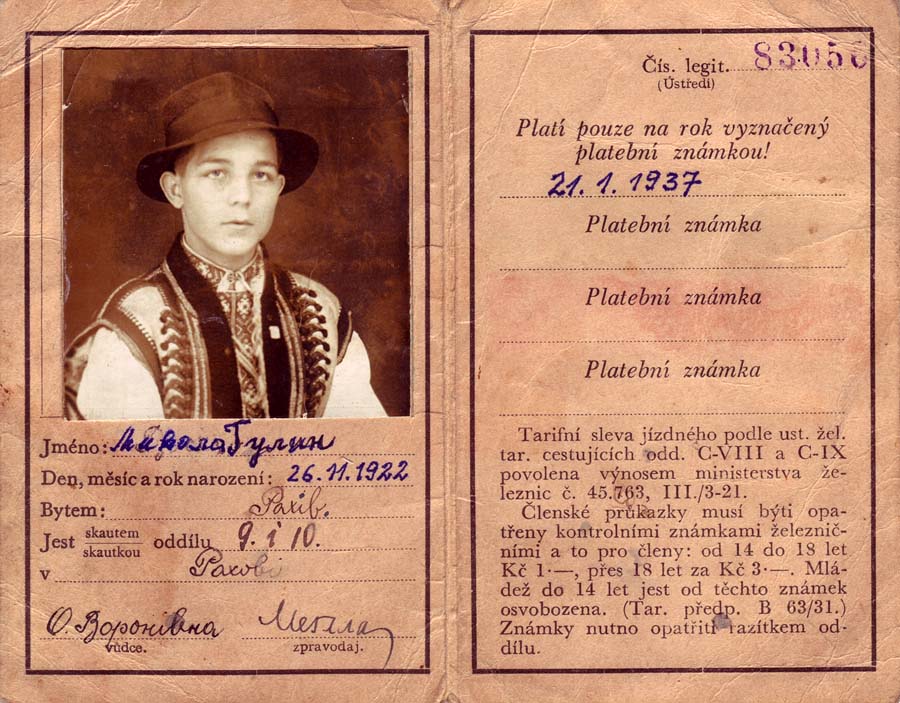 Jméno: Микола Гулин
Den, měsíc a rok narození: 26.11.1922
Bytem: Рахів.
Jest skautem skautkou oddílu 9. i 10.
v Рахові
О. Воронівна
vůdce. zpravodaj.
Čís. legit. 83056
(Ústředí)
Platí pouze na rok vyznačený
platební známkou!
21. 1. 1937
Platební známka
Platební známka
Platební známka
Tarifní sleva jízdného podle ust. žel.
tar. cestujících odd. C-VIII a C-IX
povolena výnosem ministerstva že-
leznic č. 45.763, III./3-21.
Členské průkazky musí býti opa-
třeny kontrolními známkami železnič-
ními a to pro členy: od 14 do 18 let
Kč 1·—, přes 18 let za Kč 3·—. Mlá-
dež do 14 let jest od těchto známek
osvobozena. (Tar. předp. B 63/31.)
Známky nutno opatřiti razítkem od-
dílu.